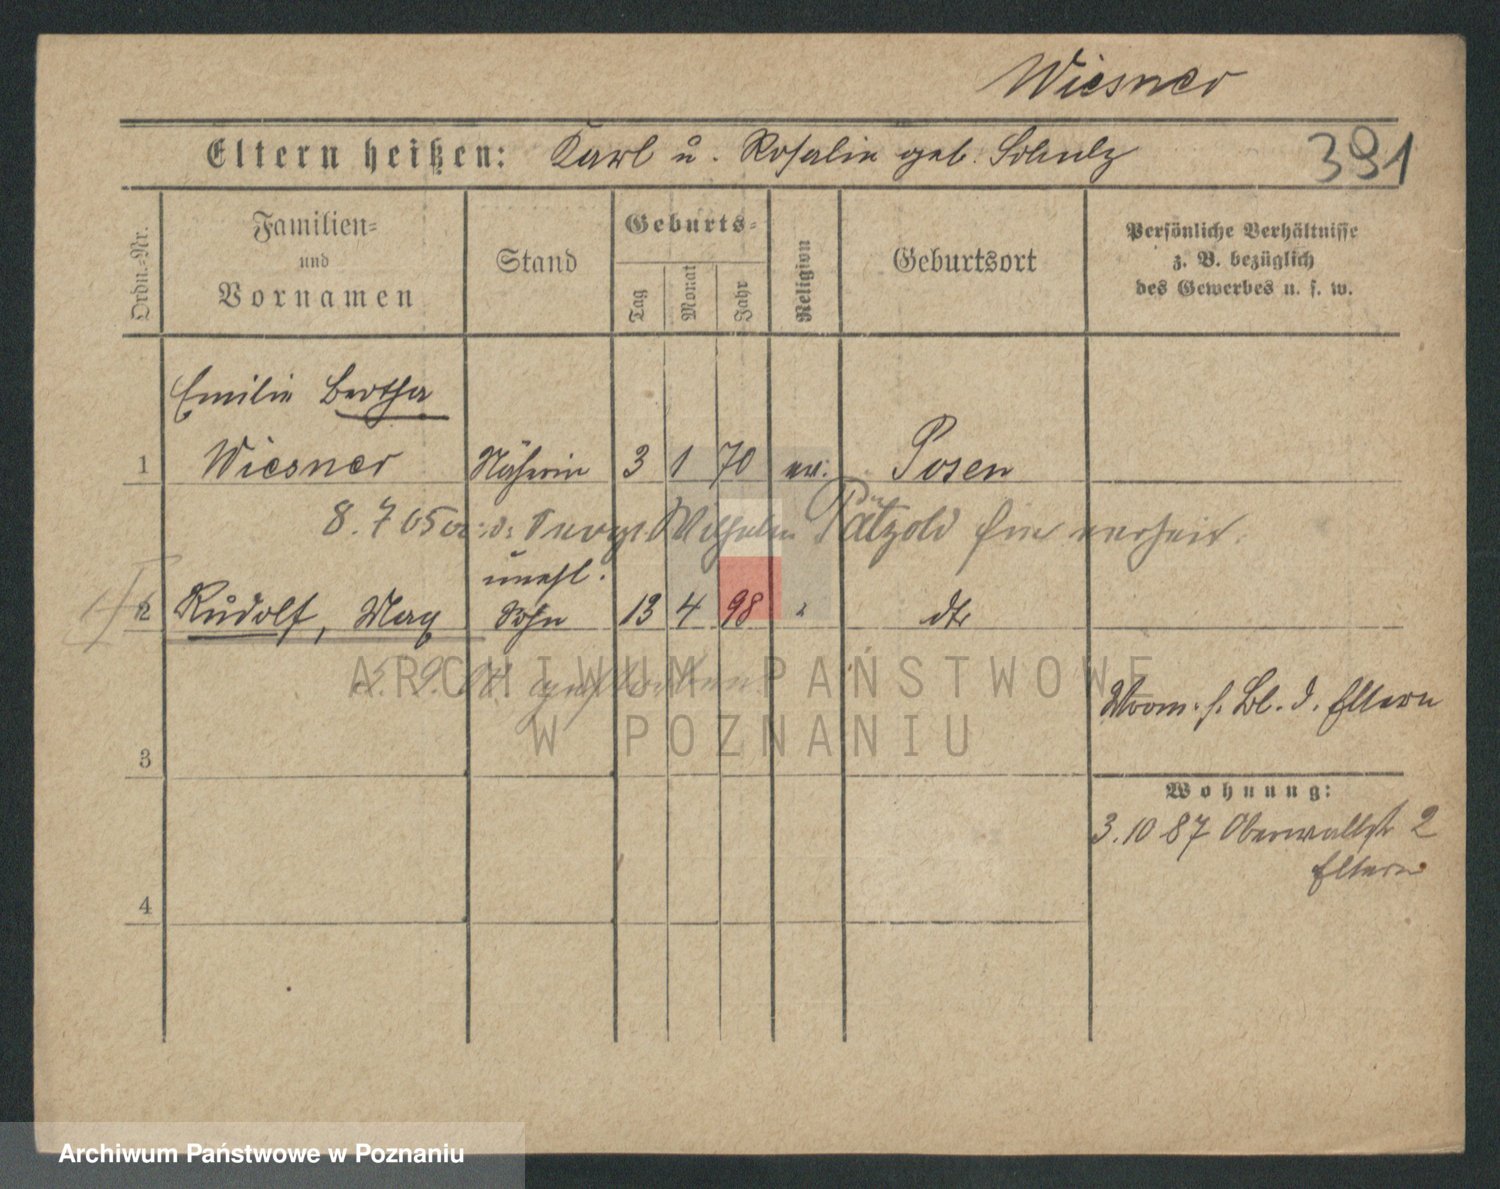 Wiesner
Eltern heißen: Karl u. Rosalie geb. Schulz
391
Ordn.-Nr.
Familien=
und
Vornamen
Stand
Geburts=
Tag
Monat
Jahr
Religion
Geburtsort
Persönliche Verhältnisse
z. B. bezüglich
des Gewerbes u. s. w.
Emilie Bertha
1 Wiesner Näherin 3 1 70 ev. Posen
8. 7 05 Wilhelm Pätzold hier verheir.
unehl.
2 Rudolf, Max Sohn 13 4 98 " dto
gestorben
s. Bl. d. Eltern
3
Wohnung:
3. 10 87 Oberwallstr 2
Eltern
4
ARCHIWUM PAŃSTWOWE
W POZNANIU
Archiwum Państwowe w Poznaniu